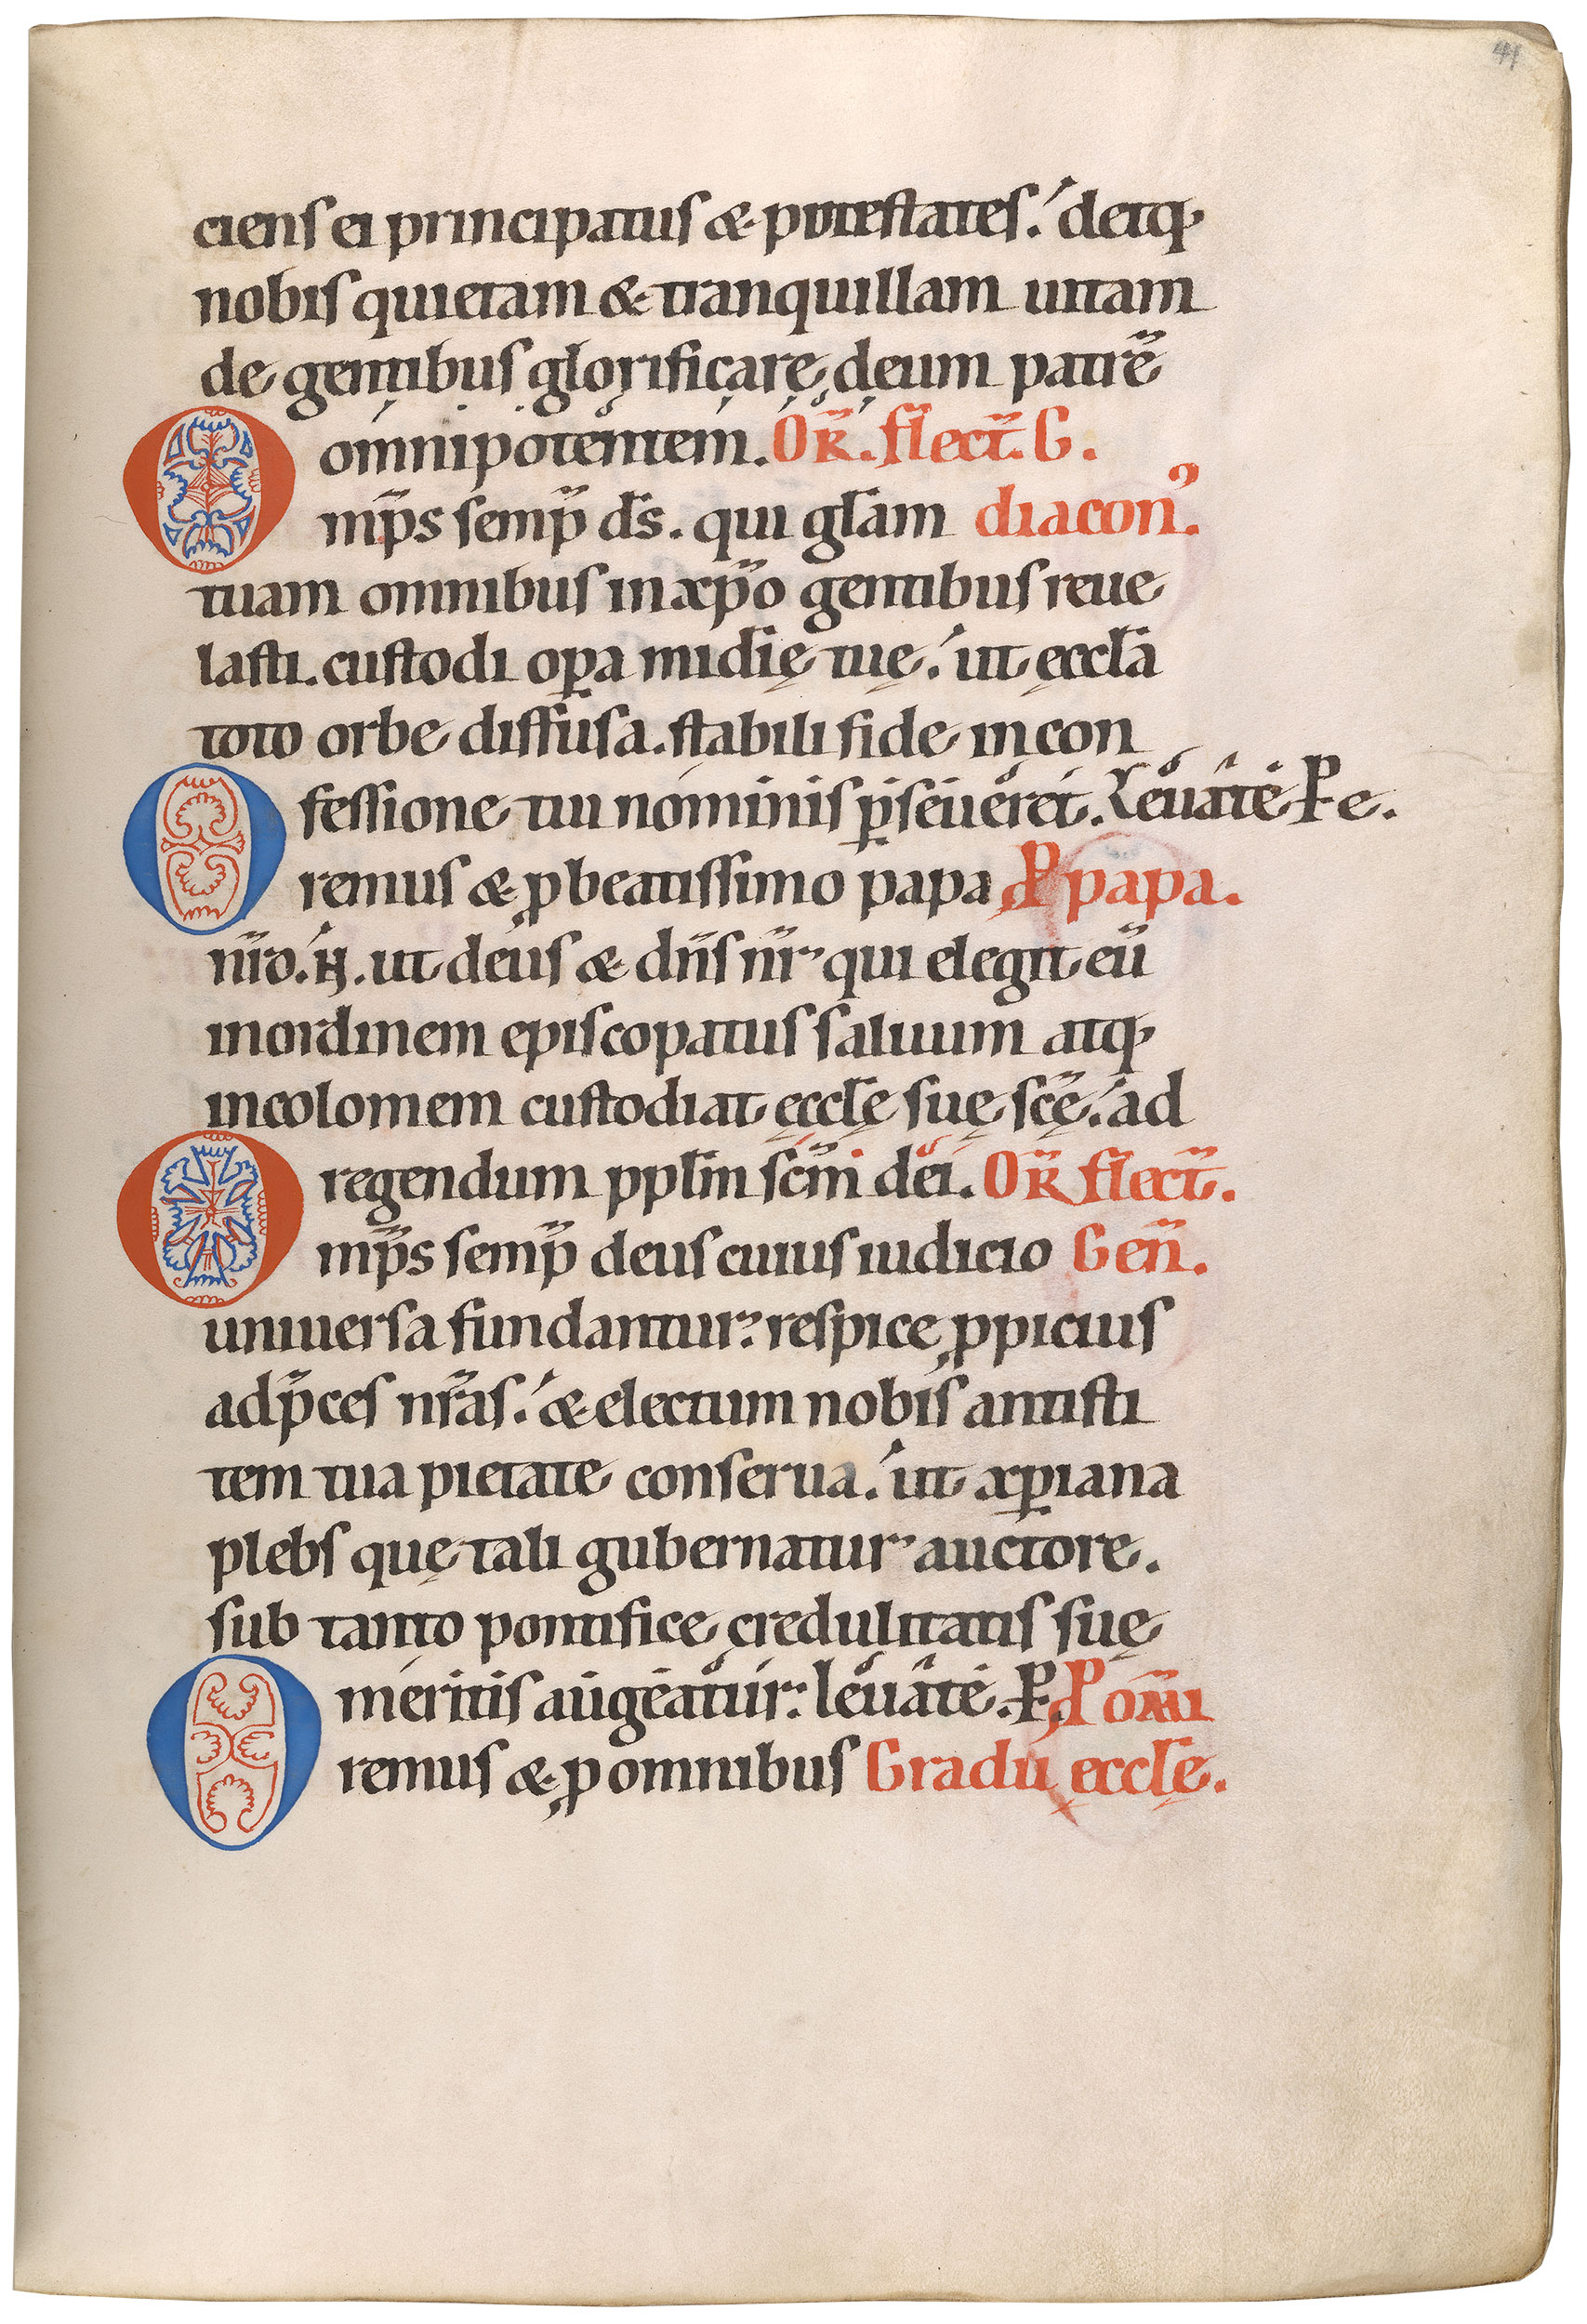 41
ciens ei principatus & potestates. detq;
nobis quietam & tranquillam uitam
de gentibus glorificare deum patrē
omnipotentem. OR̄. flect̄. G.
Omp̄s semp̄ ds̄. qui gl̄am diacon'.
tuam omnibus in xp̄o gentibus reue
lasti. custodi op̱a mīdię tuę. ut ęccl̄a
toto orbe diffusa. stabili fide in con
fessione tui nominis p̱seueret. Leuate P̶e.
Oremus & ꝓ beatissimo papa ꝓ papa.
nr̄o. N. ut deus & dn̄s nr̄ qui elegit eū
in ordinem episcopatus saluum atq;
incolomem custodiat ęccl̄ę suę sc̄ę. ad
regendum ppl̄m sc̄m dei. OR̄ flect̄.
Omp̄s semp̄ deus cuius iudicio Gen̄.
uniuersa fundantur: respice ꝓpicius
ad p̄ces nr̄as. & electum nobis antisti
tem tua pietate conserua. ut xp̱iana
plebs quę tali gubernatur auctore.
sub tanto pontifice credulitatis suę
meritis augeatur: leuate. P̶. ꝓ om̄i
Oremus & ꝓ omnibus Gradu ęccl̄ę.